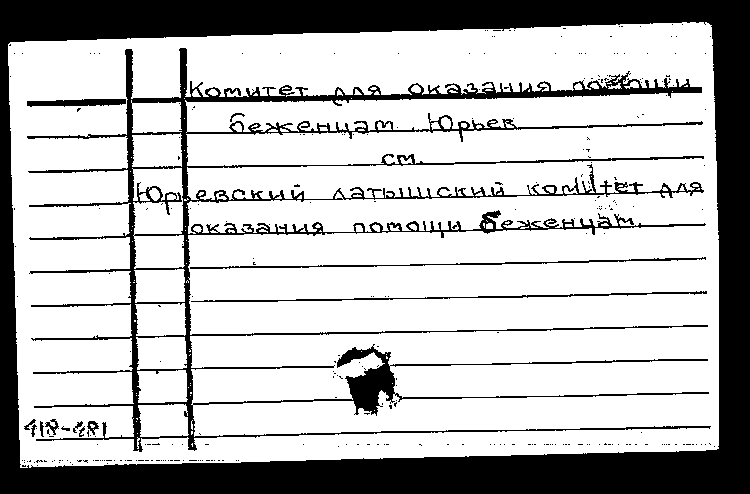 Комитет для оказания помощи
беженцам. Юрьев
см.
Юрьевский латышский комитет для
оказания помощи беженцам.
418-481